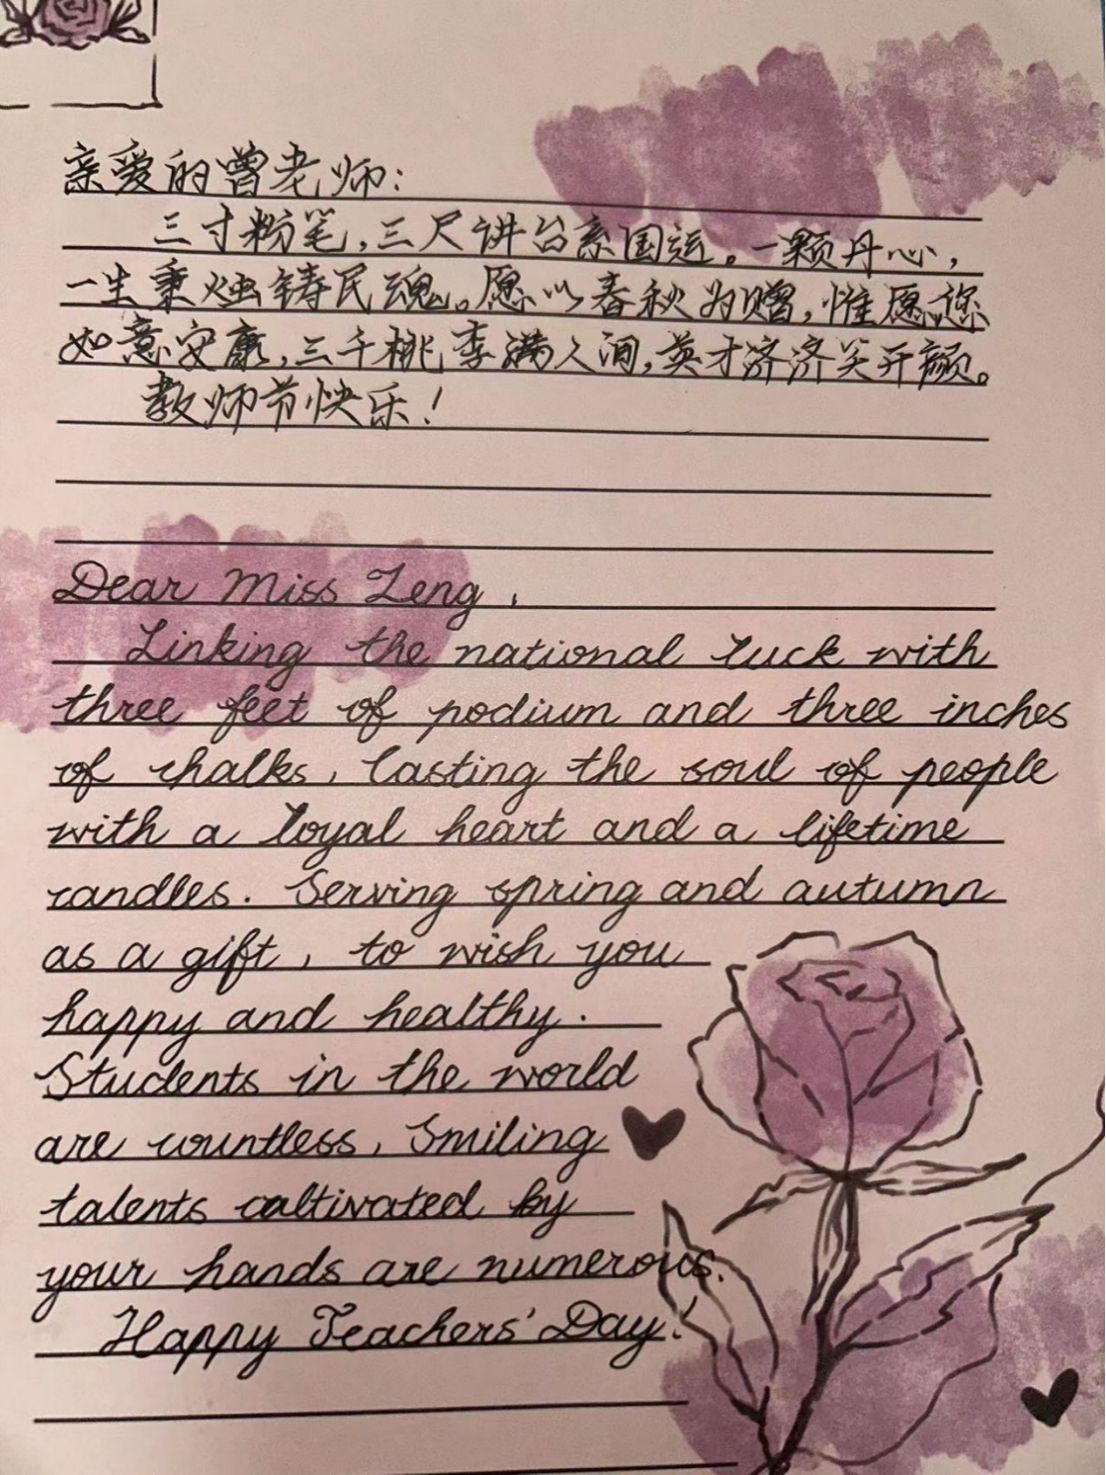 亲爱的曾老师:
三寸粉笔,三尺讲台系国运。一颗丹心,
一生秉烛铸民魂。愿以春秋为赠,惟愿您
如意安康,三千桃李满人间,英才济济笑开颜。
教师节快乐!
Dear Miss Zeng,
Linking the national luck with
three feet of podium and three inches
of chalks, Casting the soul of people
with a loyal heart and a lifetime
candles. Serving spring and autumn
as a gift, to wish you
happy and healthy.
Students in the world
are countless, Smiling
talents caltivated by
your hands are numerous.
Happy Teachers' Day!